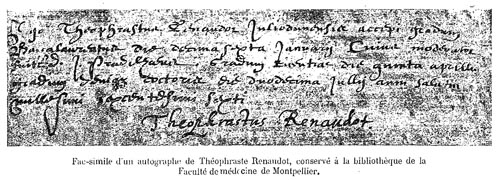 Ego Theophrastus Renaudot Juliodunensis accepi gradum
Baccalaureatus die decima septa Januarii
gradum die quinta aprilis
gradum doctoris die duodecima Julii anni
millesimi sexcentesimi
Theophrastus Renaudot.
Fac-simile d'un autographe de Théophraste Renaudot, conservé à la bibliothèque de la
Faculté de médecine de Montpellier.